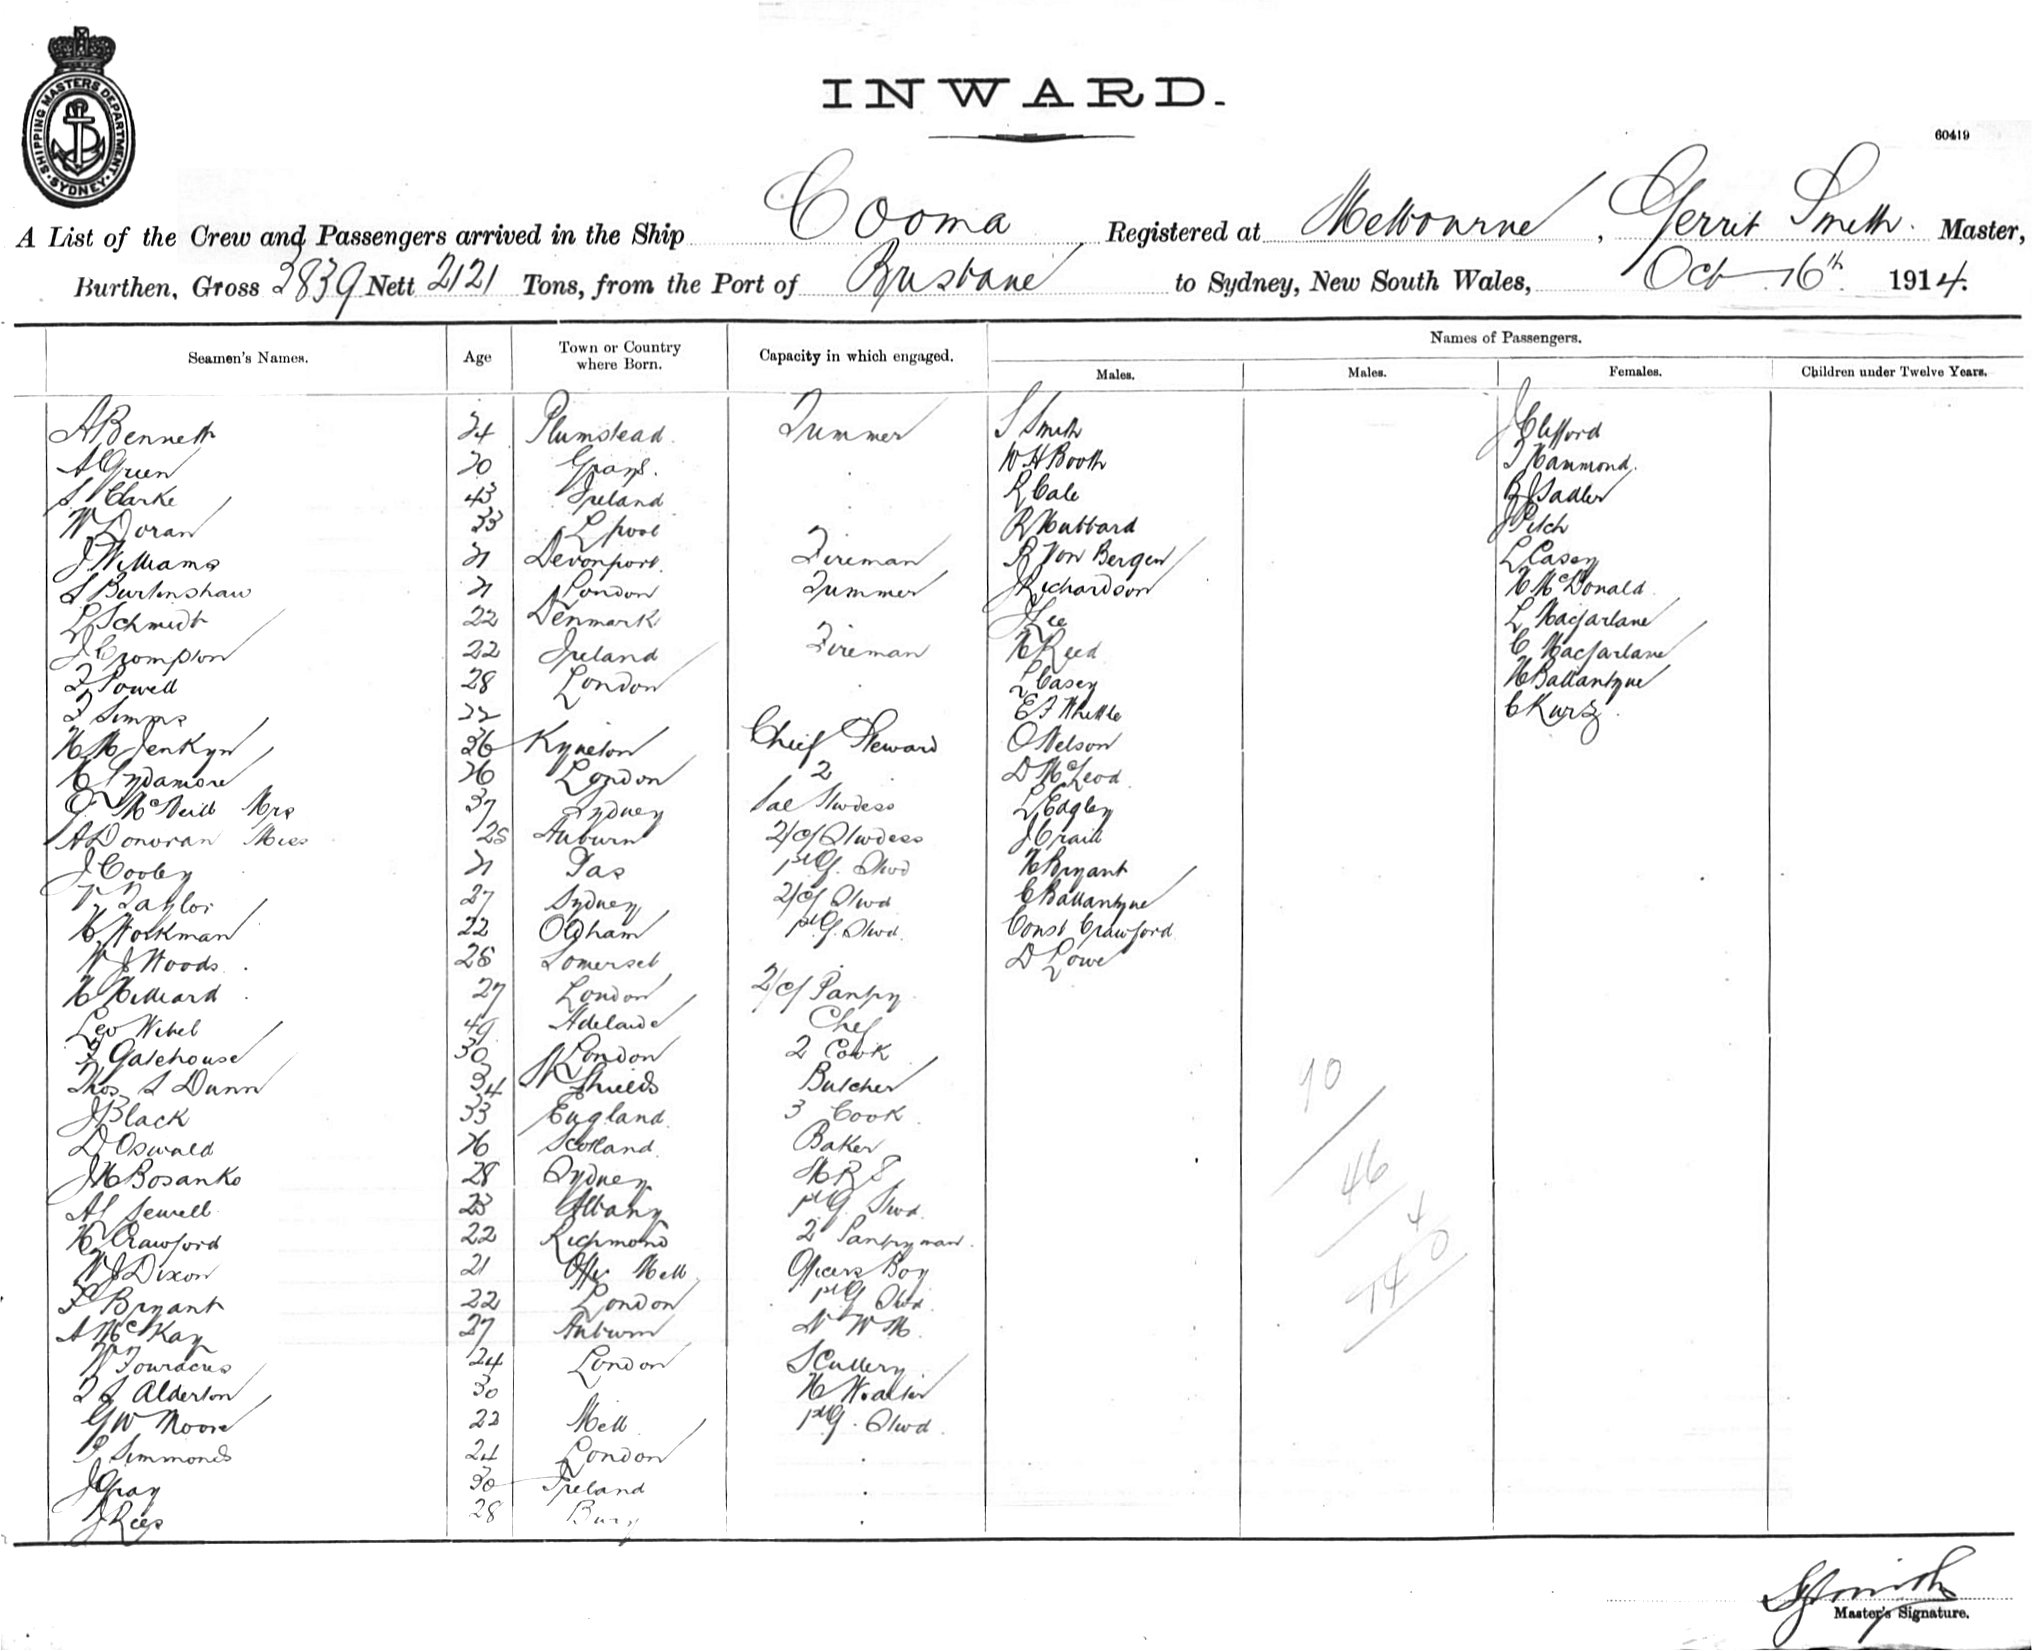 SHIPPING MASTERS DEPARTMENT
SYDNEY
INWARD.
60419
A List of the Crew and Passengers arrived in the Ship Cooma Registered at Melbourne, Gerrit Smith. Master,
Burthen, Gross 3839 Nett 2121 Tons, from the Port of Brisbane to Sydney, New South Wales, Oct 16th. 1914.
Names of Passengers.
Seamen's Names. Age Town or Country where Born. Capacity in which engaged. Males. Males. Females. Children under Twelve Years.
A Bennett 24 Plumstead. Trimmer S Smith J Clifford
A Green 20 Grays. W H Booth T Hammond.
S Clarke 43 Ireland R Cale R J Sadler
W Doran 33 L pool R Hubbard J Pitch
J Williams 21 Devonport. Fireman R Von Bergen L Casey
S Burtinshaw 21 London Trimmer J Richardson H McDonald.
L Schmidt 22 Denmark J Lee L Macfarlane
J Crompton 22 Ireland Fireman H Reed C Macfarlane
F Powell 28 London L Casey H Ballantyne
F Simms 22 E F Whittle C Kurz.
H M Jenkyn 36 Kyneton Chief Steward O Nelson
H Sydamore 26 London 2 D McLeod
G McNeill Mrs 37 Sydney Sal Stwdess L Edgley
A Donovan Miss 28 Auburn 2/cl Stwdess J Craill
J Cooley 21 Tas 1st G. Stwd H Bryant
V Taylor 27 Sydney 2/cl Stwd C Ballantyne
H Workman 22 Oldham 1st G. Stwd. Const Crawford
W J Woods. 28 Somerset D Lowe
H Hilliard 27 London 2/cl Pantry
Leo Wibel 49 Adelaide Chef
F Gatehouse 30 London 2 Cook
Thos S Dunn 34 N Shields Butcher
J Black 33 England. 3 Cook
D Oswald 26 Scotland Baker
J H Bosanko 28 Sydney
A L Sewell 23 Albany 1st G. Stwd.
H Crawford 22 Richmond 2 Pantryman.
W J Dixon 21 Melb Officers Boy
F Bryant 22 London 1st G Stwd.
A McKay 27 Auburn
W Fouracres 24 London Scullery
F S Alderton 30 H Waiter
G W Moore 22 Melb 1st G. Stwd.
P Simmonds 24 London
J Gray 30 Ireland
J Rees 28 Bury
46
Master's Signature.